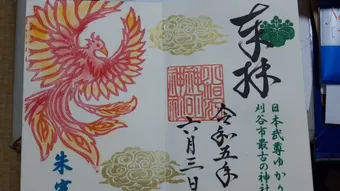 日本武尊ゆか
刈谷市最古の神社
奉拝
令和五年
六月三日
朱